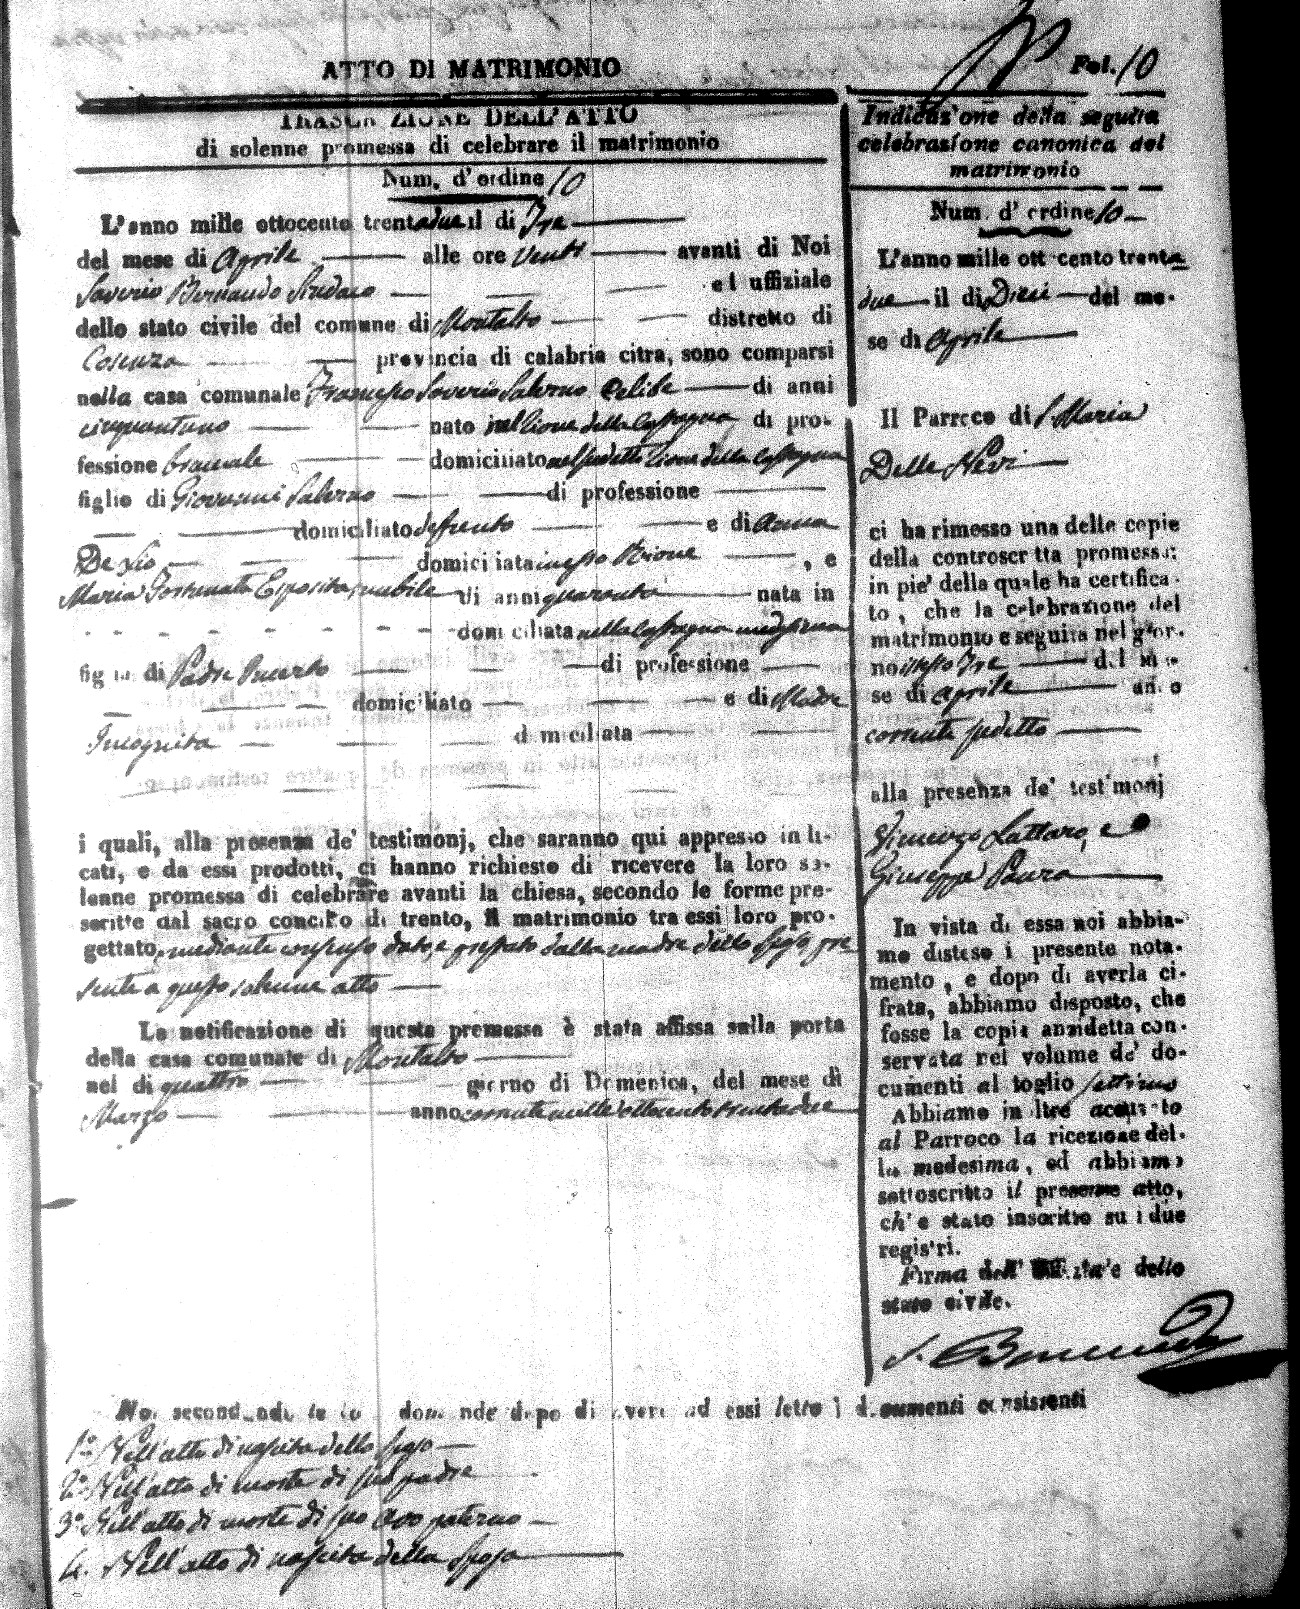 Fol. 10
ATTO DI MATRIMONIO
TRASCRIZIONE DELL'ATTO
di solenne promessa di celebrare il matrimonio
Num. d'ordine 10
L'anno mille ottocento trentadue il dì Tre
del mese di Aprile alle ore venti avanti di Noi
Saverio Bernardo Sindaco ed uffiziale
dello stato civile del comune di Montalto distretto di
Cosenza provincia di calabria citra, sono comparsi
nella casa comunale Francesco Saverio Salerno Celibe di anni
cinquantuno nato nel Rione della Castagna di pro-
fessione domiciliato nel sudetto Rione della Castagna
figlio di Giovanni Salerno di professione
domiciliato defunto e di Anna
De domiciliata in esso Rione , e
Maria Fortunata Esposita, nubile di anni quaranta nata in
domiciliata nella Castagna medesima
figlia di Padre Incerto di professione
domiciliato e di Madre
Incognita domiciliata
i quali, alla presenza de' testimonj, che saranno qui appresso indi-
cati, e da essi prodotti, ci hanno richiesto di ricevere la loro so-
lenne promessa di celebrare avanti la chiesa, secondo le forme pre-
scritte dal sacro concilio di trento, il matrimonio tra essi loro pro-
gettato, mediante consenso dato, e prestato dalla madre dello sposo pre
sente a questo solenne atto
La notificazione di questa promessa è stata affissa sulla porta
della casa comunale di Montalto
nel dì quattro giorno di Domenica, del mese di
Marzo anno corrente mille ottocento trentadue
Noi secondando le loro domande dopo di avere ad essi letto i documenti consistenti
1.° Nell'atto di nascita dello sposo
2.° Nell'atto di morte di suo padre
3.° Nell'atto di morte di suo avo paterno
4. Nell'atto di nascita della sposa
Indicazione della seguita
celebrazione canonica del
matrimonio
Num. d'ordine 10
L'anno mille ottocento trenta
due il dì Dieci del me-
se di Aprile
Il Parroco di S. Maria
Delle Nevi
ci ha rimesso una delle copie
della controscritta promessa:
in piè della quale ha certifica-
to, che la celebrazione del
matrimonio è seguita nel gior-
no stesso Tre del me-
se di Aprile anno
corrente sudetto
alla presenza de' testimonj
Vincenzo Lattaro, e
Giuseppe Paura
In vista di essa noi abbia-
mo disteso il presente nota-
mento, e dopo di averla ci-
frata, abbiamo disposto, che
fosse la copia anzidetta con-
servata nel volume de' do-
cumenti al foglio settimo
Abbiamo inoltre accusato
al Parroco la ricezione del-
la medesima, ed abbiamo
sottoscritto il presente atto,
ch'è stato inscritto su i due
registri.
Firma dell' Uffiziale dello
stato civile.
S. Bernardo